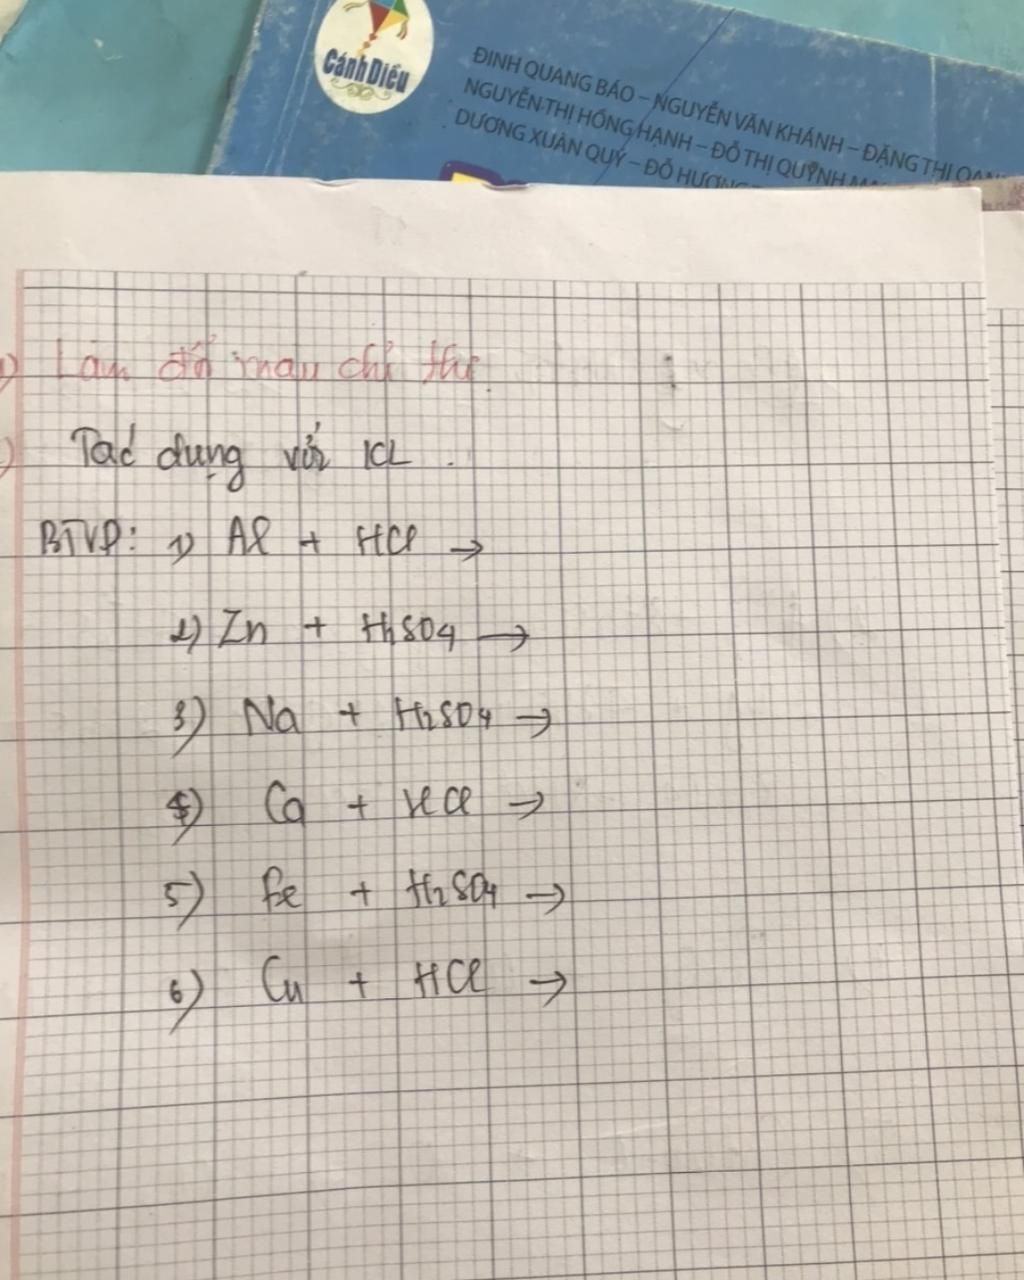 Cánh Diều
ĐINH QUANG BÁO – NGUYỄN VĂN KHÁNH – ĐẶNG THỊ OANH
NGUYỄN THỊ HỒNG HẠNH – ĐỖ THỊ QUỲNH
DƯƠNG XUÂN QUÝ – ĐỖ HƯƠNG
Làm đổi màu chỉ thị.
Tác dụng với KL.
BTVD: 1) Al + HCl →
2) Zn + H2SO4 →
3) Na + H2SO4 →
4) Ca + HCl →
5) Fe + H2SO4 →
6) Cu + HCl →